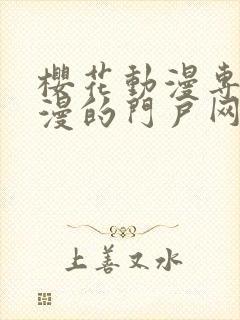 櫻花動漫專
漫的門戶网
上善又水